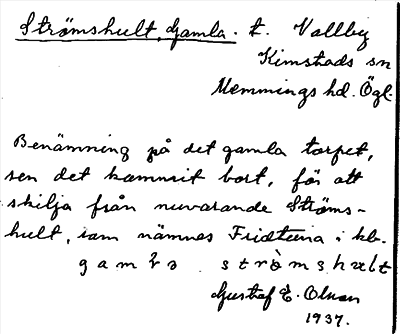 Strömshult, Gamla. t. Vallby
Kimstads sn
Memmings hd. Ögl.
Benämning på det gamla torpet,
sen det kommit bort, för att
skilja från nuvarande Ströms-
hult, som nämnes Fridtuna i kb.
Gustaf E. Olson
1937.